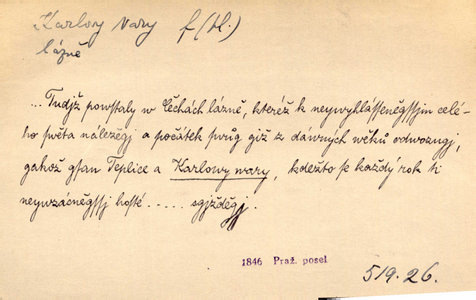 Karlovy Vary f (pl.)
lázně
... Tudjž powstaly w Čechách lázně, kteréž k neywyhlássenějssjm celé-
ho swěta náležegj a počátek swůg giž z dáwných wěků odwozugj,
gakož gsau Teplice a Karlowy wary, kdežto se každý rok ti
neywzácněgssj hosté ..... sgjžděgj.
1846 Praž. posel
519.26.